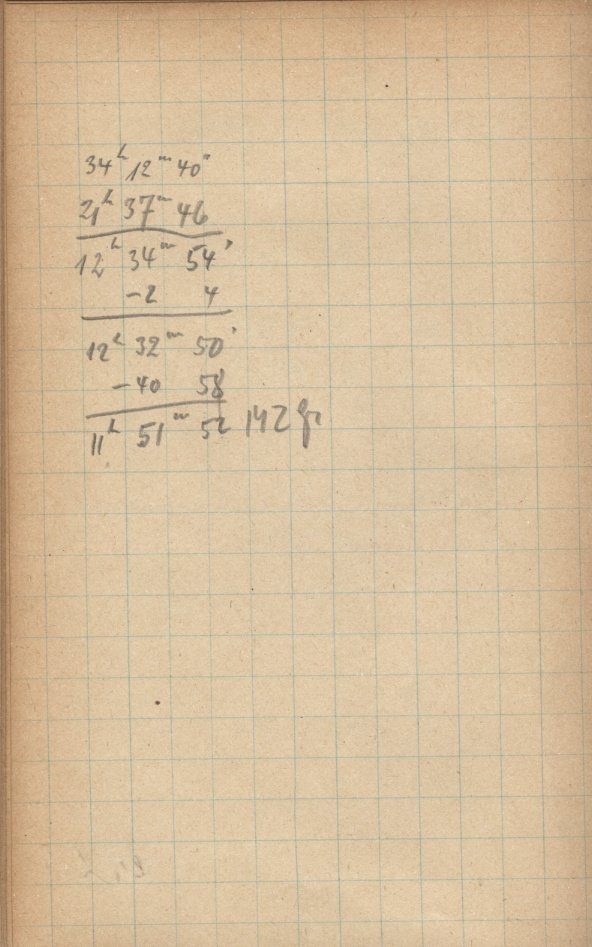 34ʰ 12ᵐ 40ˢ
21ʰ 37ᵐ 46
12ʰ 34ᵐ 54ˢ
-2 4
12ʰ 32ᵐ 50ˢ
-40 58
11ʰ 51ᵐ 52 142